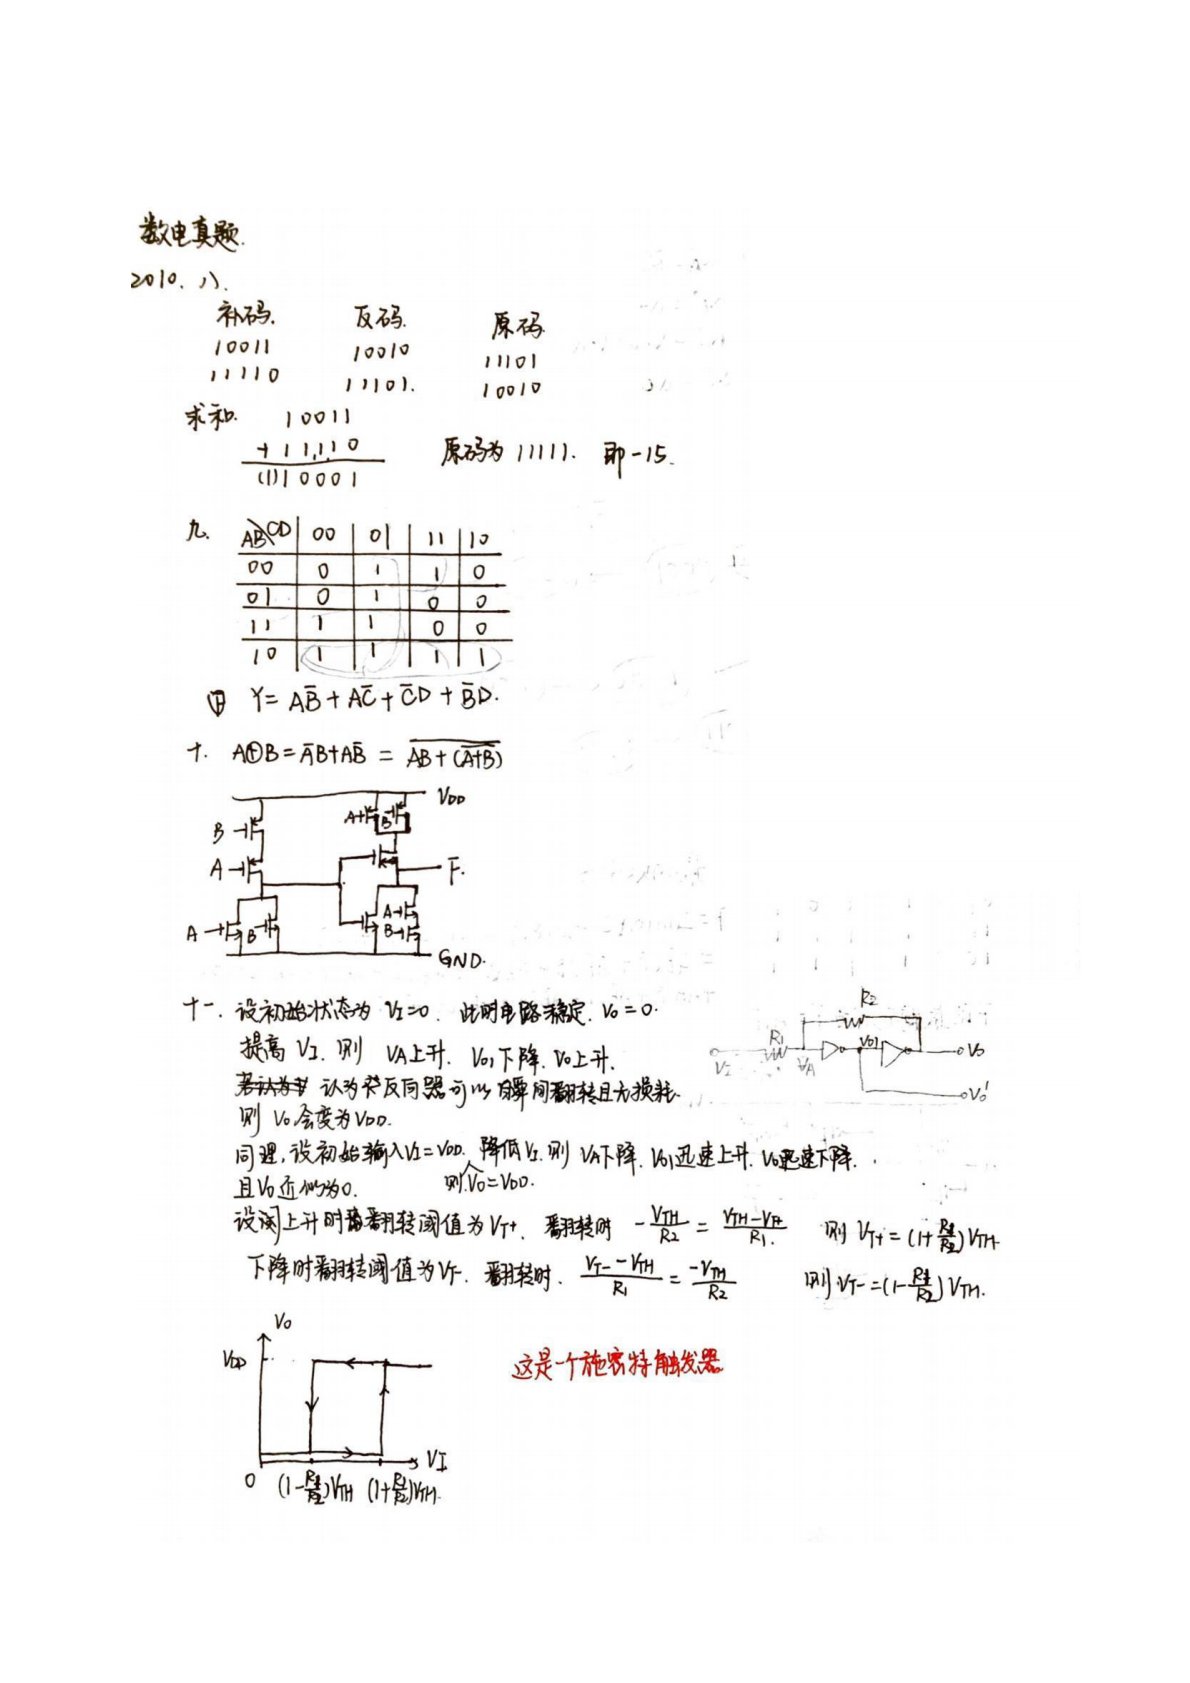 数电真题.
2010. 八.
补码. 反码. 原码
10011 10010 11101
11110 11101. 10010
求和. 10011
+ 11110 原码为 11111. 即 -15.
(1)10001
九. AB\CD 00 01 11 10
00 0 1 1 0
01 0 1 0 0
11 1 1 0 0
10 1 1 1 1
Y= AB̅ + AC̅ + C̅D + B̅D.
十. A⊕B = A̅B+AB̅ = \overline{AB+(\overline{A+B})}
VDD
A B
B
A
F.
A
A B B
GND.
十一. 设初始状态为 VI=0. 此时电路稳定. Vo=0. R2
提高 VI. 则 VA上升. Vo1下降. Vo上升. R1 VI VA Vo1 Vo
认为反向器可以瞬间翻转且无损耗. Vo'
则 Vo会变为VDD.
同理, 设初始输入VI=VDD. 降低VI. 则 VA下降. Vo1迅速上升. Vo迅速下降.
且Vo近似为0. 则Vo=VDD.
设上升时翻转阈值为VT+. 翻转时 -VTH/R2 = (VTH-VT+)/R1. 则 VT+=(1+R1/R2)VTH
下降时翻转阈值为VT-. 翻转时. (VT- -VTH)/R1 = -VTH/R2 则 VT-=(1-R1/R2)VTH.
Vo
VDD 这是一个施密特触发器
VI
0 (1-R1/R2)VTH (1+R1/R2)VTH.